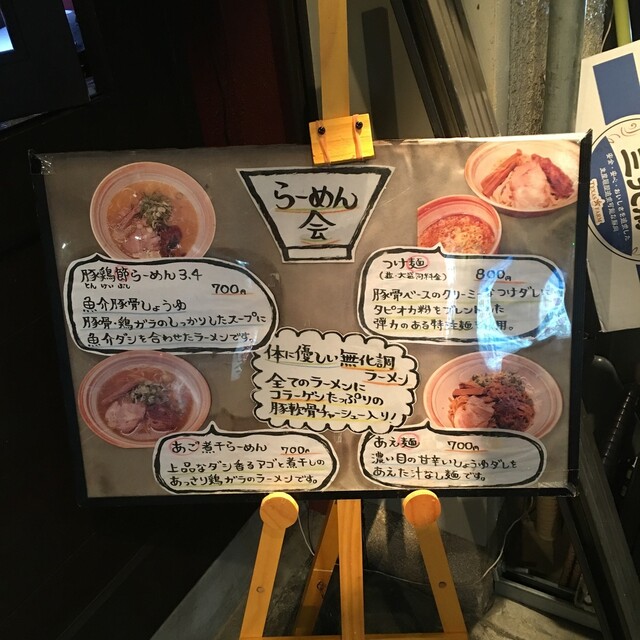 らーめん
会
豚鶏節らーめん3.4
とん けい ぶし
700円
魚介豚骨しょうゆ
豚骨・鶏ガラのしっかりしたスープに
魚介ダシを合わせたラーメンです。
つけ麺
800円
豚骨ベースのクリーミーなつけダレ
タピオカ粉をブレンドした
弾力のある特注麺
体に優しい無化調
ラーメン
全てのラーメンに
コラーゲンたっぷりの
豚軟骨チャーシュー入り!
あご煮干らーめん 700円
上品なダシ香るアゴと煮干しの
あっさり鶏ガラのラーメンです。
あえ麺 700円
濃い目の甘辛いしょうゆダレを
あえた汁なし麺です。